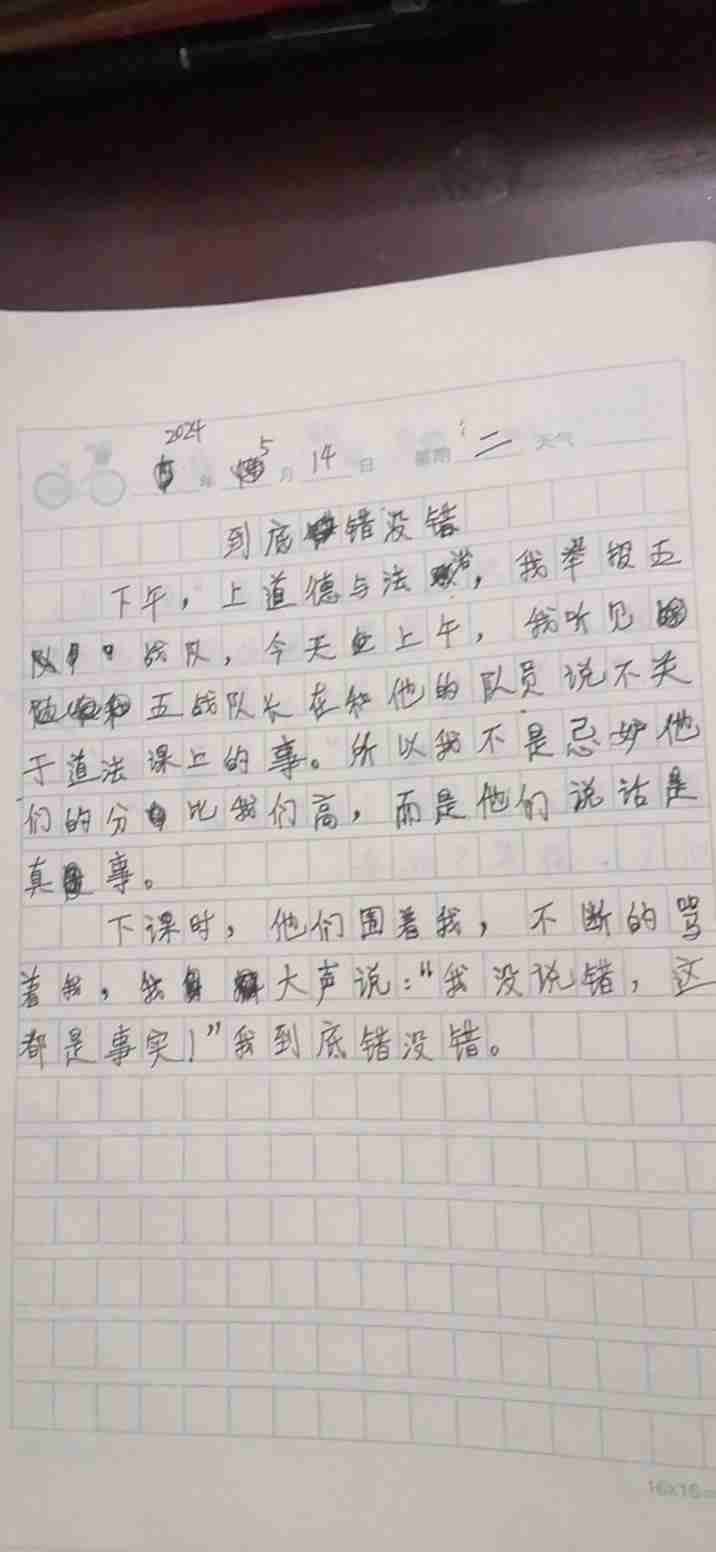 2024年5月14日 星期二 天气
到底错没错
下午，上道德与法治，我举报五
战队，今天上午，我听见
五战队长在和他的队员说不关
于道法课上的事。所以我不是忌妒他
们的分比我们高，而是他们说话是
真事。
下课时，他们围着我，不断的骂
着我，我大声说：“我没说错，这
都是事实！”我到底错没错。
16X16=